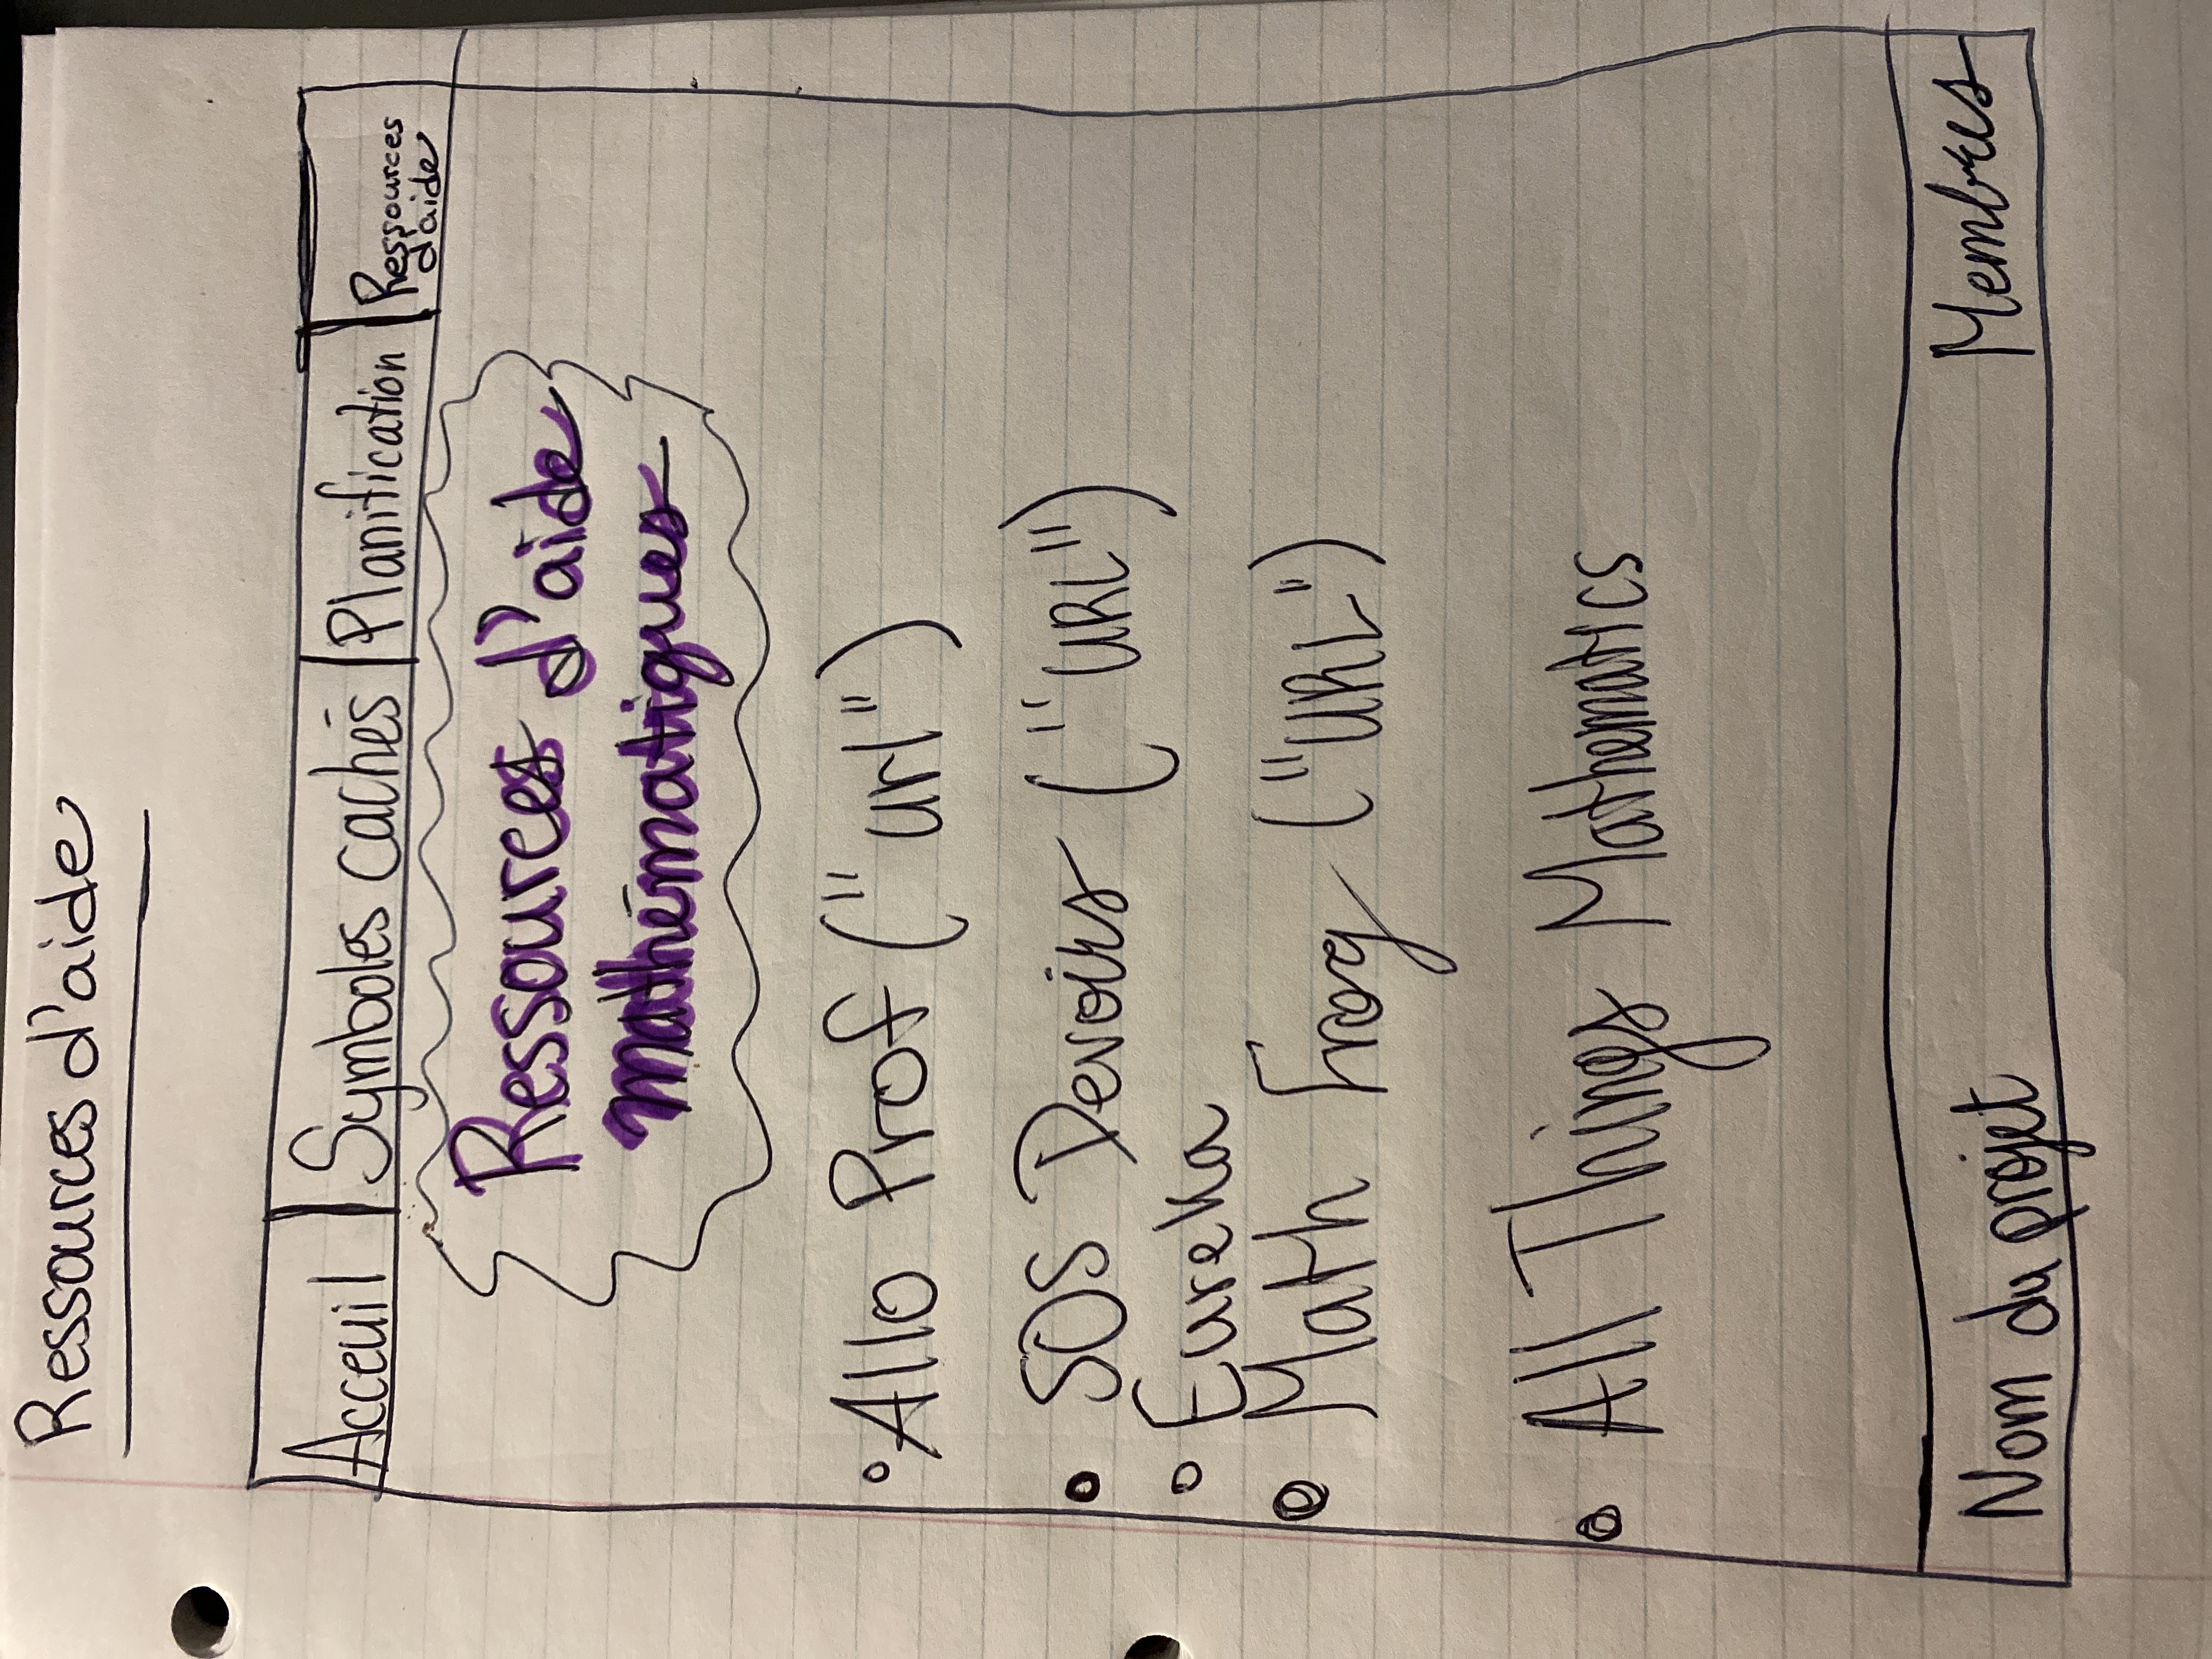 Ressources d'aide
Acceuil Symboles cachés Planification Ressources
d'aide
Ressources d'aide
mathématiques
Allo Prof ("url")
SOS Devoirs ("URL")
Eureka
Math Frog ("URL")
All Things Mathematics
Nom du projet Membres